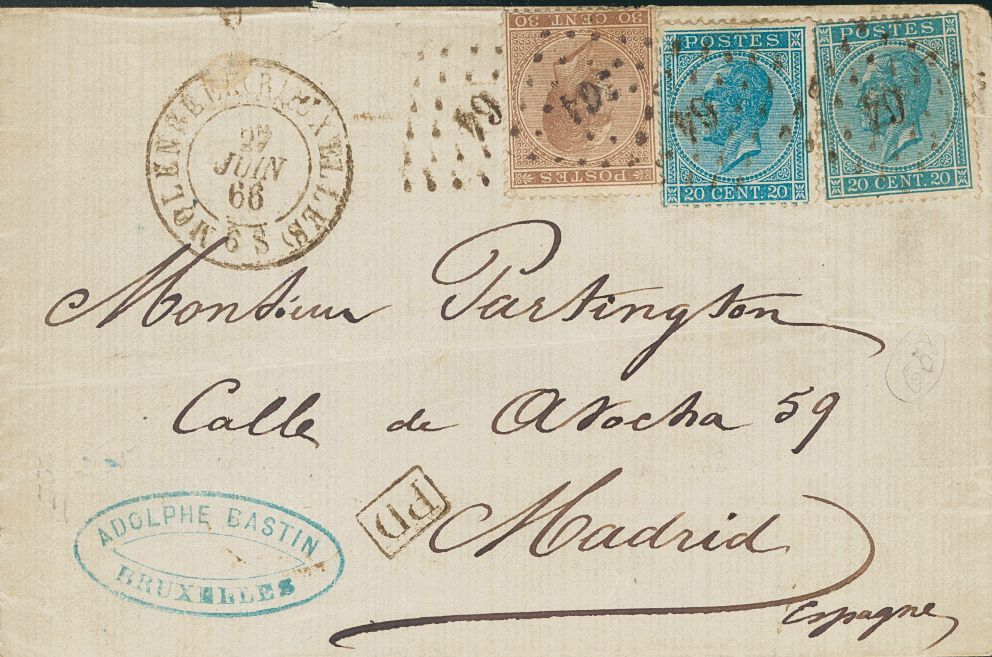 30 CENT. 30
POSTES
POSTES
20 CENT. 20
POSTES
20 CENT. 20
64
64
64
64
MOLENBEEK (BRUXELLES)
27
JUIN
66
Monsieur Partington
Calle de Atocha 59
PD
Madrid
Espagne
ADOLPHE BASTIN
BRUXELLES